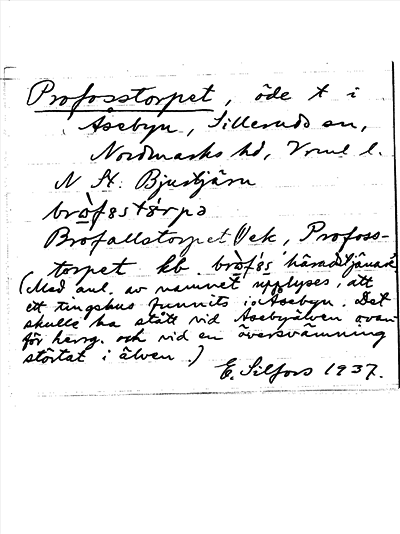 Profosstorpet, öde t i
Åsebyn, Silleruds sn,
Nordmarks hd, Vrml l.
N St. Bjustjärn
bròfəstórpə
Brofallstorpet Jek, Profoss-
torpet kb. bròfəs häradstjänare
(Med anl. av namnet upplyses, att
ett tingshus funnits i Åsebyn. Det
skulle ha stått vid Åsebyälven ovan-
för herrg. och vid en översvämning
störtat i älven.)
E. Silfors 1937.